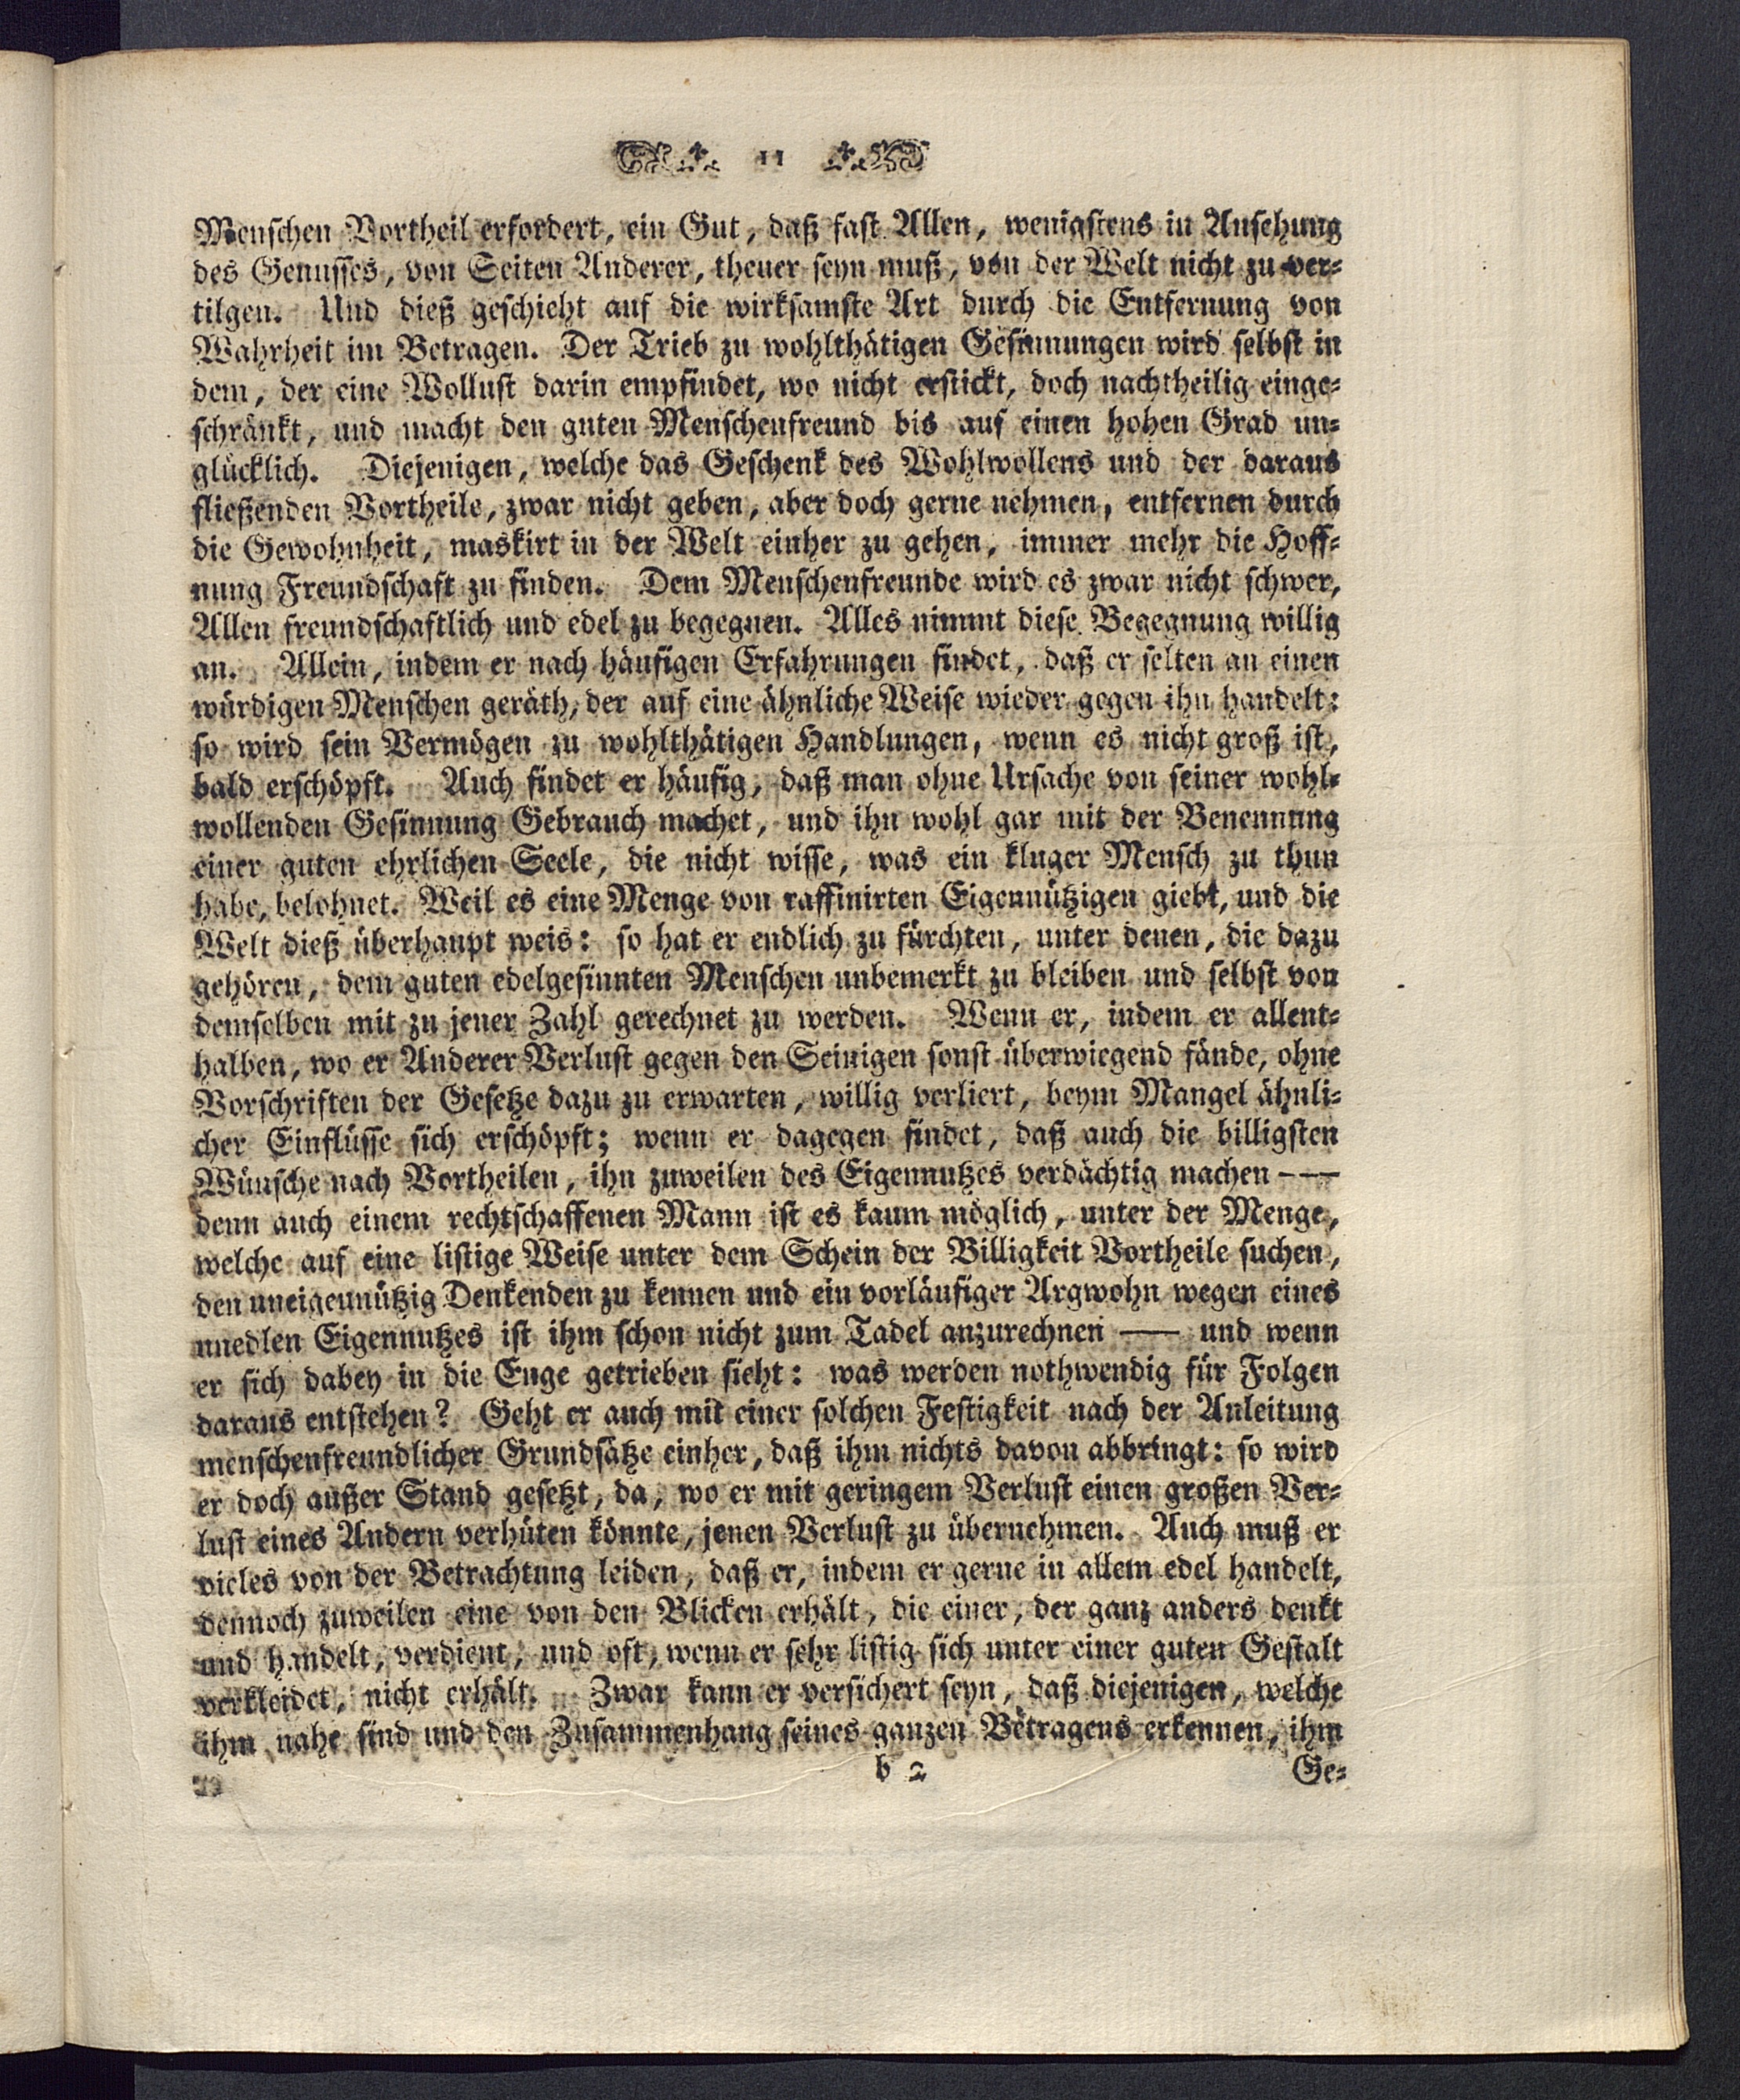 11
Menschen Vortheil erfordert, ein Gut, daß fast Allen, wenigstens in Ansehung
des Genusses, von Seiten Anderer, theuer seyn muß, von der Welt nicht zu ver=
tilgen. Und dieß geschieht auf die wirksamste Art durch die Entfernung von
Wahrheit im Betragen. Der Trieb zu wohlthätigen Gesinnungen wird selbst in
dem, der eine Wollust darin empfindet, wo nicht erstickt, doch nachtheilig einge=
schränkt, und macht den guten Menschenfreund bis auf einen hohen Grad un=
glücklich. Diejenigen, welche das Geschenk des Wohlwollens und der daraus
fließenden Vortheile, zwar nicht geben, aber doch gerne nehmen, entfernen durch
die Gewohnheit, maskirt in der Welt einher zu gehen, immer mehr die Hoff=
nung Freundschaft zu finden. Dem Menschenfreunde wird es zwar nicht schwer,
Allen freundschaftlich und edel zu begegnen. Alles nimmt diese Begegnung willig
an. Allein, indem er nach häufigen Erfahrungen findet, daß er selten an einen
würdigen Menschen geräth, der auf eine ähnliche Weise wieder gegen ihn handelt:
so wird sein Vermögen zu wohlthätigen Handlungen, wenn es nicht groß ist,
bald erschöpft. Auch findet er häufig, daß man ohne Ursache von seiner wohl=
wollenden Gesinnung Gebrauch machet, und ihn wohl gar mit der Benennung
einer guten ehrlichen Seele, die nicht wisse, was ein kluger Mensch zu thun
habe, belohnet. Weil es eine Menge von raffinirten Eigennützigen giebt, und die
Welt dieß überhaupt weis: so hat er endlich zu fürchten, unter denen, die dazu
gehören, dem guten edelgesinnten Menschen unbemerkt zu bleiben und selbst von
demselben mit zu jener Zahl gerechnet zu werden. Wenn er, indem er allent=
halben, wo er Anderer Verlust gegen den Seinigen sonst überwiegend fände, ohne
Vorschriften der Gesetze dazu zu erwarten, willig verliert, beym Mangel ähnli=
cher Einflüsse sich erschöpft; wenn er dagegen findet, daß auch die billigsten
Wünsche nach Vortheilen, ihn zuweilen des Eigennutzes verdächtig machen ——
denn auch einem rechtschaffenen Mann ist es kaum möglich, unter der Menge,
welche auf eine listige Weise unter dem Schein der Billigkeit Vortheile suchen,
den uneigennützig Denkenden zu kennen und ein vorläufiger Argwohn wegen eines
unedlen Eigennutzes ist ihm schon nicht zum Tadel anzurechnen —— und wenn
er sich dabey in die Enge getrieben sieht: was werden nothwendig für Folgen
daraus entstehen? Geht er auch mit einer solchen Festigkeit nach der Anleitung
menschenfreundlicher Grundsätze einher, daß ihm nichts davon abbringt: so wird
er doch außer Stand gesetzt, da, wo er mit geringem Verlust einen großen Ver=
lust eines Andern verhüten könnte, jenen Verlust zu übernehmen. Auch muß er
vieles von der Betrachtung leiden, daß er, indem er gerne in allem edel handelt,
dennoch zuweilen eine von den Blicken erhält, die einer, der ganz anders denkt
und handelt, verdient, und oft, wenn er sehr listig sich unter einer guten Gestalt
verkleidet, nicht erhält. Zwar kann er versichert seyn, daß diejenigen, welche
ihm nahe sind und den Zusammenhang seines ganzen Betragens erkennen, ihm
b 2
Ge=